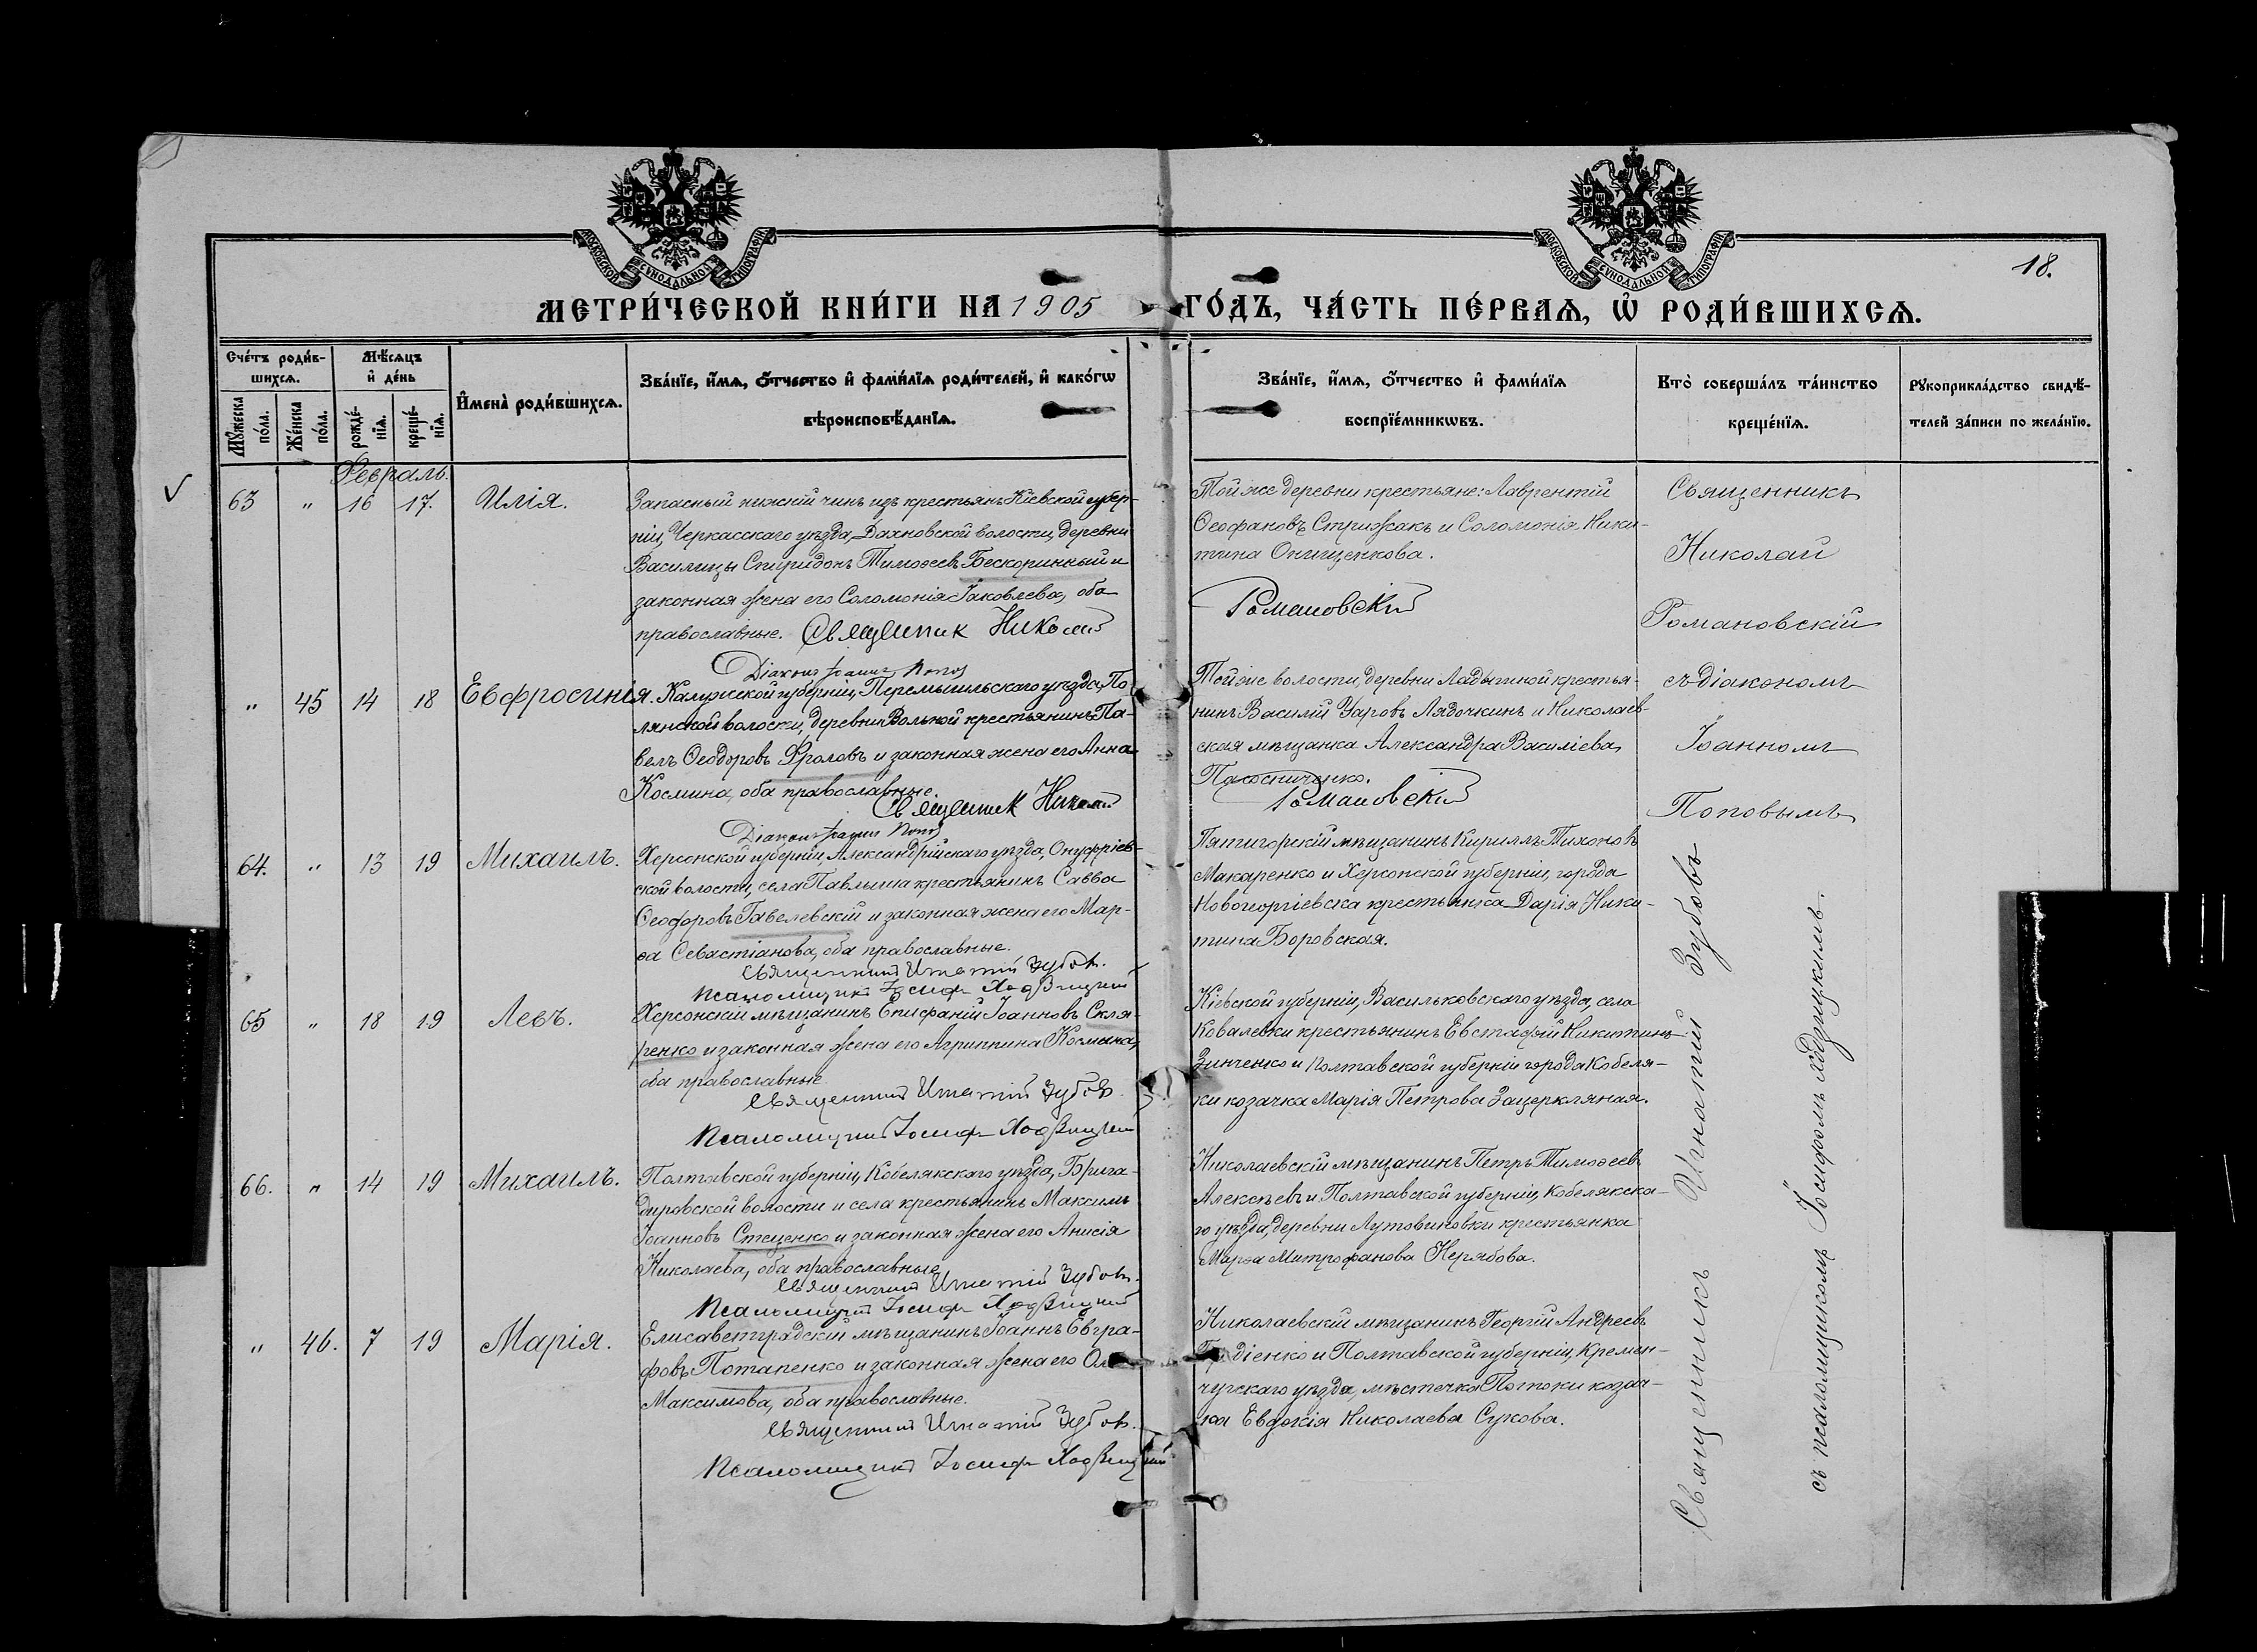 МОСКОВСКОЙ СѴНОДАЛЬНОЙ ТИПОГРАФІИ
МОСКОВСКОЙ СѴНОДАЛЬНОЙ ТИПОГРАФІИ
18.
МЕТРИ́ЧЕСКОЙ КНИ́ГИ НА 1905 ГО́ДЪ, ЧА́СТЬ ПЕ́РВАѦ, Ѡ҆ РОДИ́ВШИХСѦ.
Сче́тъ роди́в-
шихсѧ.
Мꙋ́жеска по́ла.
Же́нска по́ла.
Мѣ́сѧцъ
и҆ де́нь
рожде́-
нїѧ.
креще́-
нїѧ.
И҆мена̀ роди́вшихсѧ.
Зва́нїе, и҆́мѧ, ѻ҆́тчество и҆ фами́лїѧ роди́телей, и҆ како́гѡ
вѣроисповѣ́данїѧ.
Зва́нїе, и҆́мѧ, ѻ҆́тчество и҆ фами́лїѧ
воспрїе́мникѡвъ.
Кто̀ соверша́лъ та́инство
креще́нїѧ.
Рꙋкоприкла́дство свидѣ́-
телей за́писи по жела́нїю.
Февраль.
63 " 16 17. Илія.
Запасный нижній чинъ изъ крестьянъ Кіевской губер-
ніи, Черкасскаго уѣзда, Дахновской волости, деревни
Василицы Спиридонъ Тимоѳеевъ Бескоринный и
законная жена его Соломонія Іаковлева, оба
православные. Священик Николай
Діаконъ Іоаннъ Попов
Той же деревни крестьяне: Лаврентій
Ѳеофановъ Стрижакъ и Соломонія Ники-
тина Онищенкова.
Романовскій
Священникъ
Николай
Романовскій
съ діакономъ
Іоанномъ
Поповымъ
" 45 14 18 Евфросинія.
Калужской губерніи, Перемышльскаго уѣзда, По-
лянской волости, деревни Вольной крестьянинъ Па-
велъ Ѳеодоровъ Фроловъ и законная жена его Анна
Космина, оба православные.
Священик Николай
Діаконъ Іоаннъ Попов
Той же волости, деревни Ладыгиной крестья-
нинъ Василій Уаровъ Лядочкинъ и Николаев-
ская мѣщанка Александра Василіева
Пасѣниченко.
Романовскій
64. " 13 19 Михаилъ.
Херсонской губерніи, Александрійскаго уѣзда, Онуфріев-
ской волости, села Павлыша крестьянинъ Савва
Ѳеодоровъ Гавелевскій и законная жена его Мар-
ѳа Севастіанова, оба православные.
Священникъ Игнатій Зубовъ.
Псаломщикъ Іосифъ Ходзицкій
Пятигорскій мѣщанинъ Кириллъ Тихоновъ
Макаренко и Херсонской губерніи, города
Новогеоргіевска крестьянка Дарія Ники-
тина Боровская.
65 " 18 19 Левъ.
Херсонскій мѣщанинъ Епифаній Іоанновъ Скля-
ренко и законная жена его Агриппина Космина,
оба православные
Священникъ Игнатій Зубовъ.
Псаломщикъ Іосифъ Ходзицкій
Кіевской губерніи, Васильковскаго уѣзда, села
Ковалевки крестьянинъ Евстафій Никитинъ
Зинченко и Полтавской губерніи города Кобеля-
ки козачка Марія Петрова Зацеркляная.
66. " 14 19 Михаилъ.
Полтавской губерніи, Кобелякскаго уѣзда, Брига-
дировской волости и села крестьянинъ Максимъ
Іоанновъ Стеценко и законная жена его Анисія
Николаева, оба православные
Священникъ Игнатій Зубовъ.
Псаломщикъ Іосифъ Ходзицкій
Николаевскій мѣщанинъ Петръ Тимоѳеевъ
Алексѣевъ и Полтавской губерніи, Кобелякска-
го уѣзда, деревни Лутовиновки крестьянка
Марѳа Митрофанова Нерябова.
" 46. 7 19 Марія.
Елисаветградскій мѣщанинъ Іоаннъ Евгра-
фовъ Потапенко и законная жена его
Максимова, оба православные.
Священникъ Игнатій Зубовъ.
Псаломщикъ Іосифъ Ходзицкій
Николаевскій мѣщанинъ Георгій Андреевъ
Гордіенко и Полтавской губерніи, Кремен-
чугскаго уѣзда, мѣстечка Потоки козач-
ка Евдокія Николаева Сукова.
Священникъ Игнатій Зубовъ
съ псаломщикомъ Іосифомъ Ходзицкимъ.